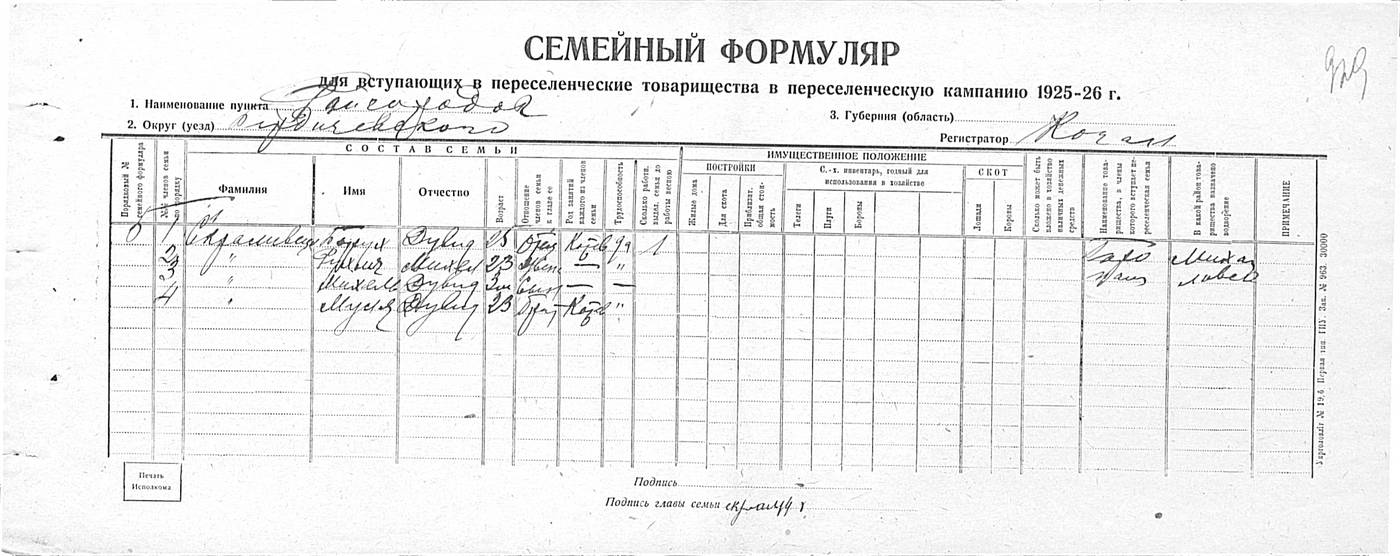 СЕМЕЙНЫЙ ФОРМУЛЯР
для вступающих в переселенческие товарищества в переселенческую кампанию 1925-26 г.
929
1. Наименование пункта
3. Губерния (область)
2. Округ (уезд) Бердичевского
Регистратор Коган
СОСТАВ СЕМЬИ
ИМУЩЕСТВЕННОЕ ПОЛОЖЕНИЕ
Порядковый № семейного формуляра
№№ членов семьи по порядку
Фамилия
Имя
Отчество
Возраст
Отношение членов семьи к главе ее
Род занятий каждого из членов семьи
Трудоспособность
Сколько работн. выдел. семья до работы весною
ПОСТРОЙКИ
Жилые дома
Для скота
Приблизит. общая стоимость
С.-х. инвентарь, годный для использования в хозяйстве
Телеги
Плуги
Бороны
СКОТ
Лошади
Коровы
Сколько может быть вложено в хозяйство наличных денежных средств
Наименование товарищества, в члены которого вступает переселенческая семья
В какой район товарищества назначено водворение
ПРИМЕЧАНИЕ
1 Борух Дувид 25 1
2 " Михел 23 Жен — "
3 " Михель Дувид Сын — —
4 " Муся Дувид 23 "
Печать Исполкома
Подпись
Подпись главы семьи
Укрголовліт № 19.6 Первая тип. ГПУ. Зак. № 963 30000